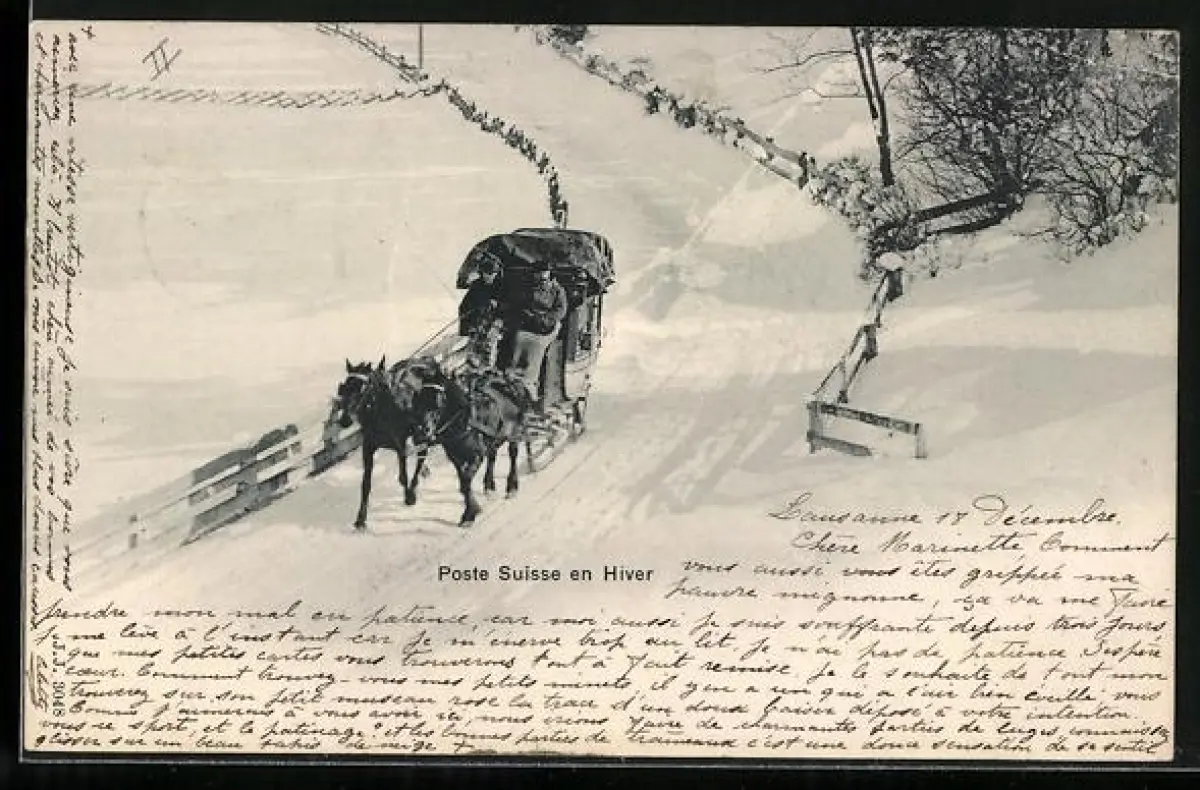 II
Poste Suisse en Hiver
Lausanne 17 Décembre.
Chère Marinette Comment
vous aussi vous êtes grippée ma
pauvre mignonne, ça va me faire
prendre mon mal en patience, car moi aussi je suis souffrante depuis trois jours
je me lève à l'instant car je m'énerve trop au lit, je n'ai pas de patience. J'espère
que mes petites cartes vous trouverons tout à fait remise. Je le souhaite de tout mon
cœur. Comment trouvez-vous mes petits minets, il y en a un qui a l'air bien éveillé vous
trouverez sur son petit museau rose la trace d'un doux baiser déposé à votre intention.
Comme j'aimerais à vous avoir ici, nous irions faire de charmantes parties de luges, connaissez
vous se sport, et le patinage? et les bonnes parties de traîneaux c'est une douce sensation de se sentir
glisser sur un beau tapis de neige
avec une vitesse vertigineuse je suis sûre que vous
aimeriez cela. Il faut chère amie de vos bonnes
et nous
J.J. 9048